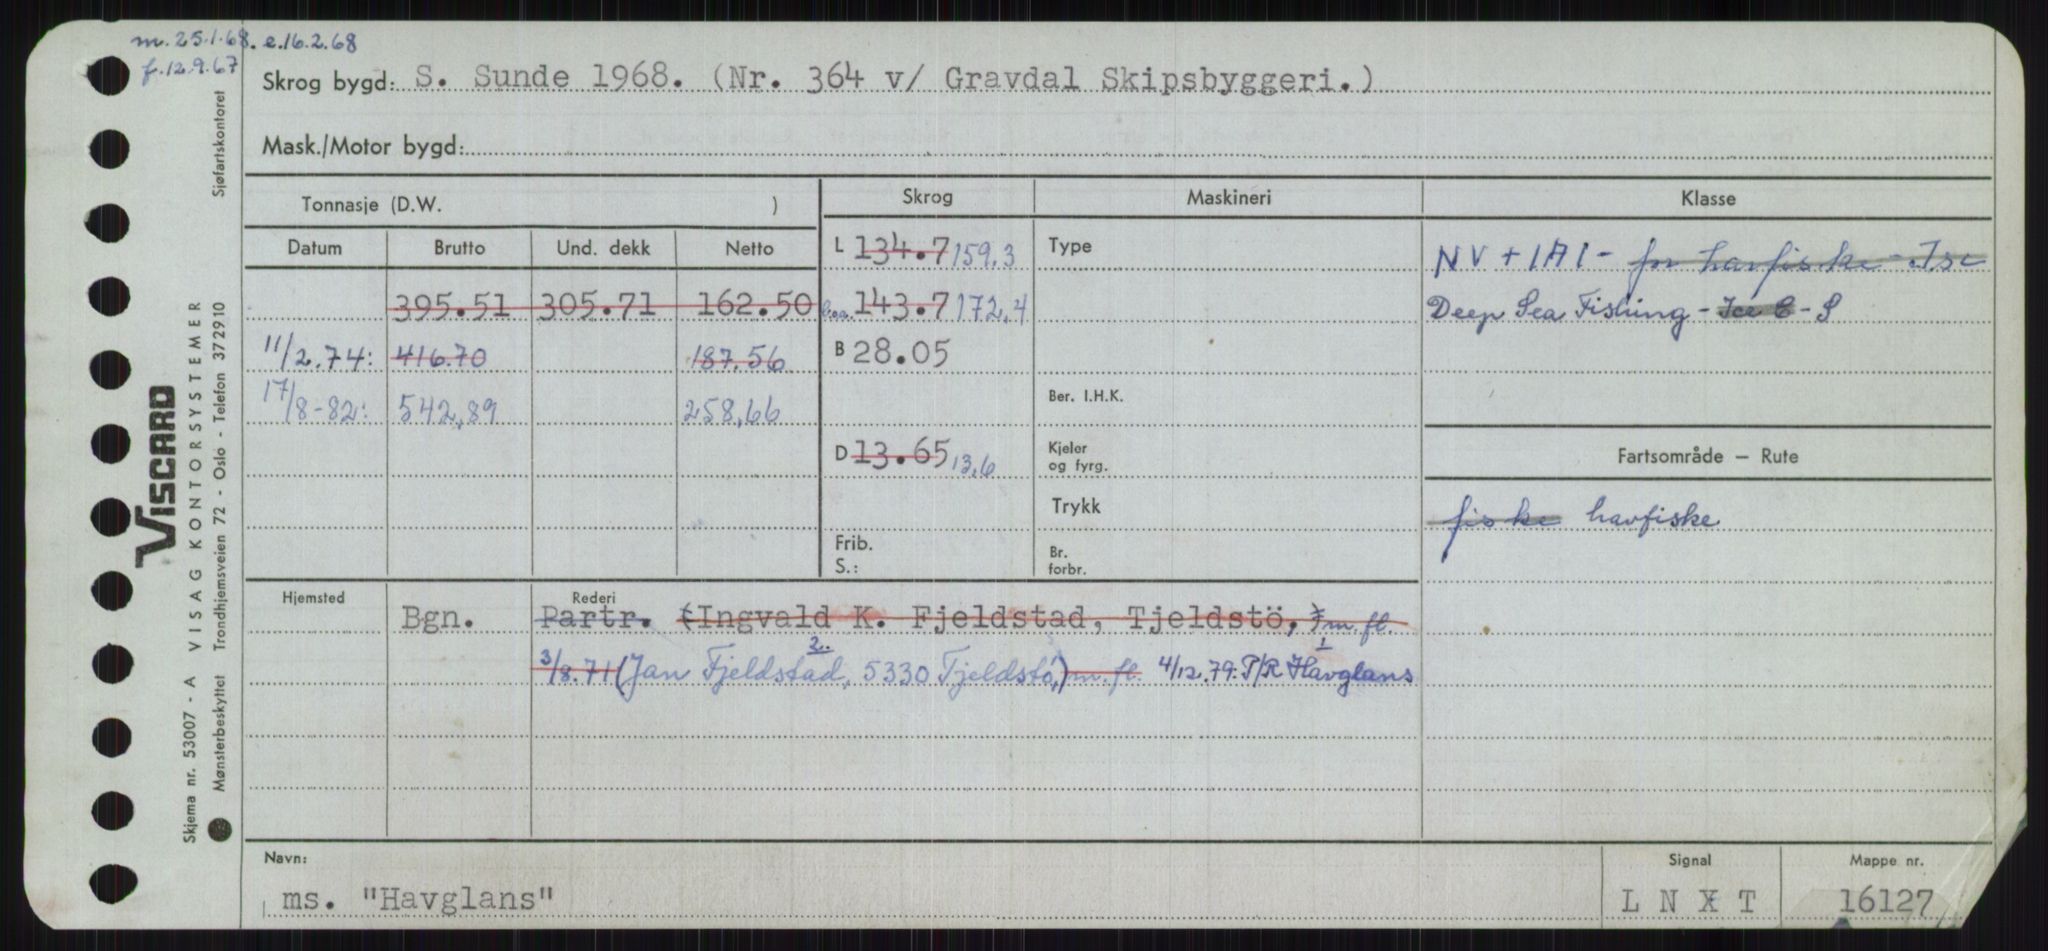 m. 25.1.68. e.16.2.68
f.12.9.67
Skrog bygd: S. Sunde 1968. (Nr. 364 v/ Gravdal Skipsbyggeri.)
Mask./Motor bygd:
Tonnasje (D.W. )
Skrog
Maskineri
Klasse
Datum Brutto Und. dekk Netto
395.51 305.71 162.50
11/2.74: 416.70 187.56
17/8-82: 542,89 258,66
L 134.7 159.3
l.o.a. 143.7 172.4
B 28.05
D 13.65 13.6
Frib.
S.:
Type
Ber. I.H.K.
Kjeler
og fyrg.
Trykk
Br.
forbr.
NV + 1A1 - for havfiske - Isc
Deep Sea Fishing - Ice C - S
Fartsområde — Rute
fiske havfiske
Hjemsted
Rederi
Bgn. Partr. (Ingvald K. Fjeldstad, Tjeldstö,) m. fl.
2. 1
3/8.71 (Jan Fjeldstad, 5330 Tjeldstö,) m. fl. 4/12.79: P/R Havglans
Navn:
ms. "Havglans"
Signal
L N X T
Mappe nr.
16127
VISCARD
Skjema nr. 53007 - A VISAG KONTORSYSTEMER
Mønsterbeskyttet Trondhjemsveien 72 - Oslo - Telefon 372910 Sjøfartskontoret